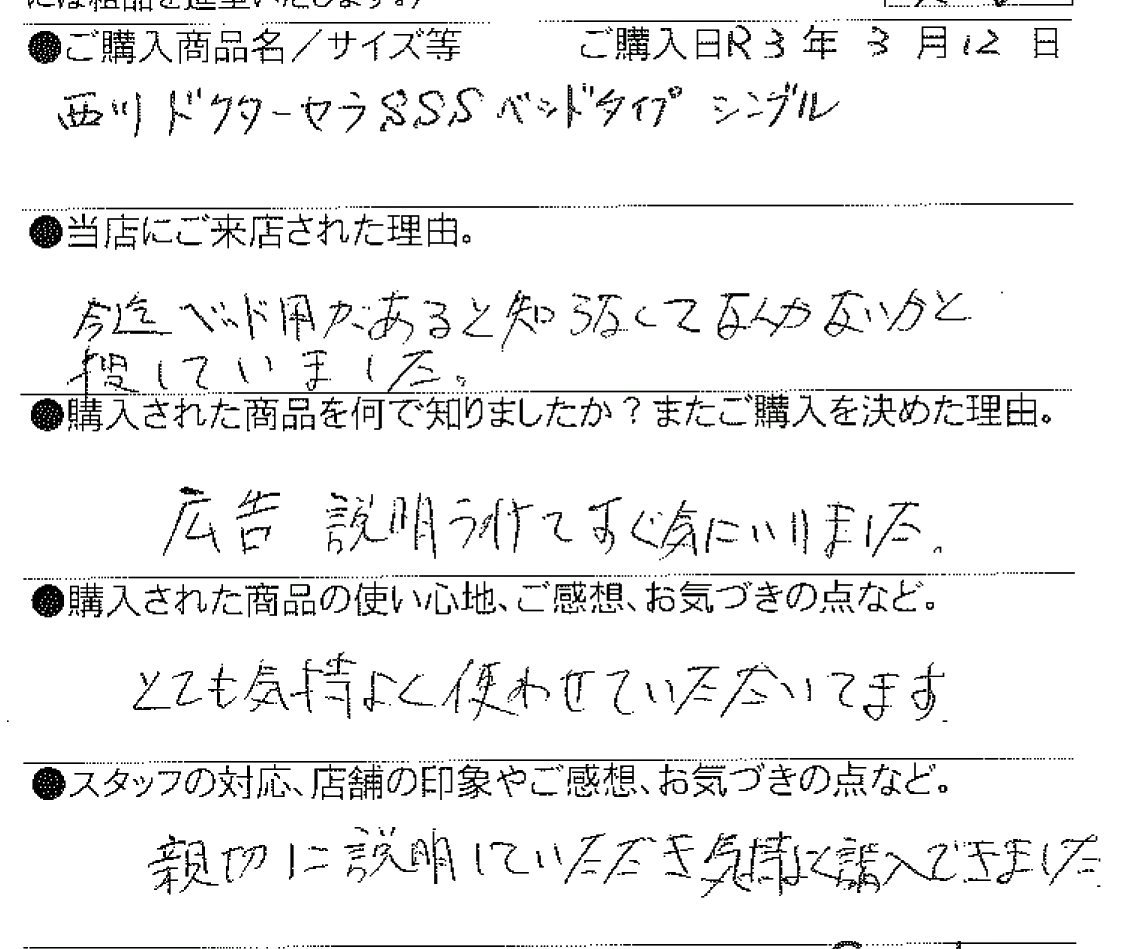 には粗品を進呈いたします。)
●ご購入商品名／サイズ等 ご購入日R3年3月12日
西川ドクターセラSSSベッドタイプ シングル
●当店にご来店された理由。
今迄ベッド用があると知らなくてなんかないかと
捜していました。
●購入された商品を何で知りましたか？またご購入を決めた理由。
広告 説明うけてすぐ気にいりました。
●購入された商品の使い心地、ご感想、お気づきの点など。
とても気持よく使わせていただいてます
●スタッフの対応、店舗の印象やご感想、お気づきの点など。
親切に説明していただき気持よく購入できました